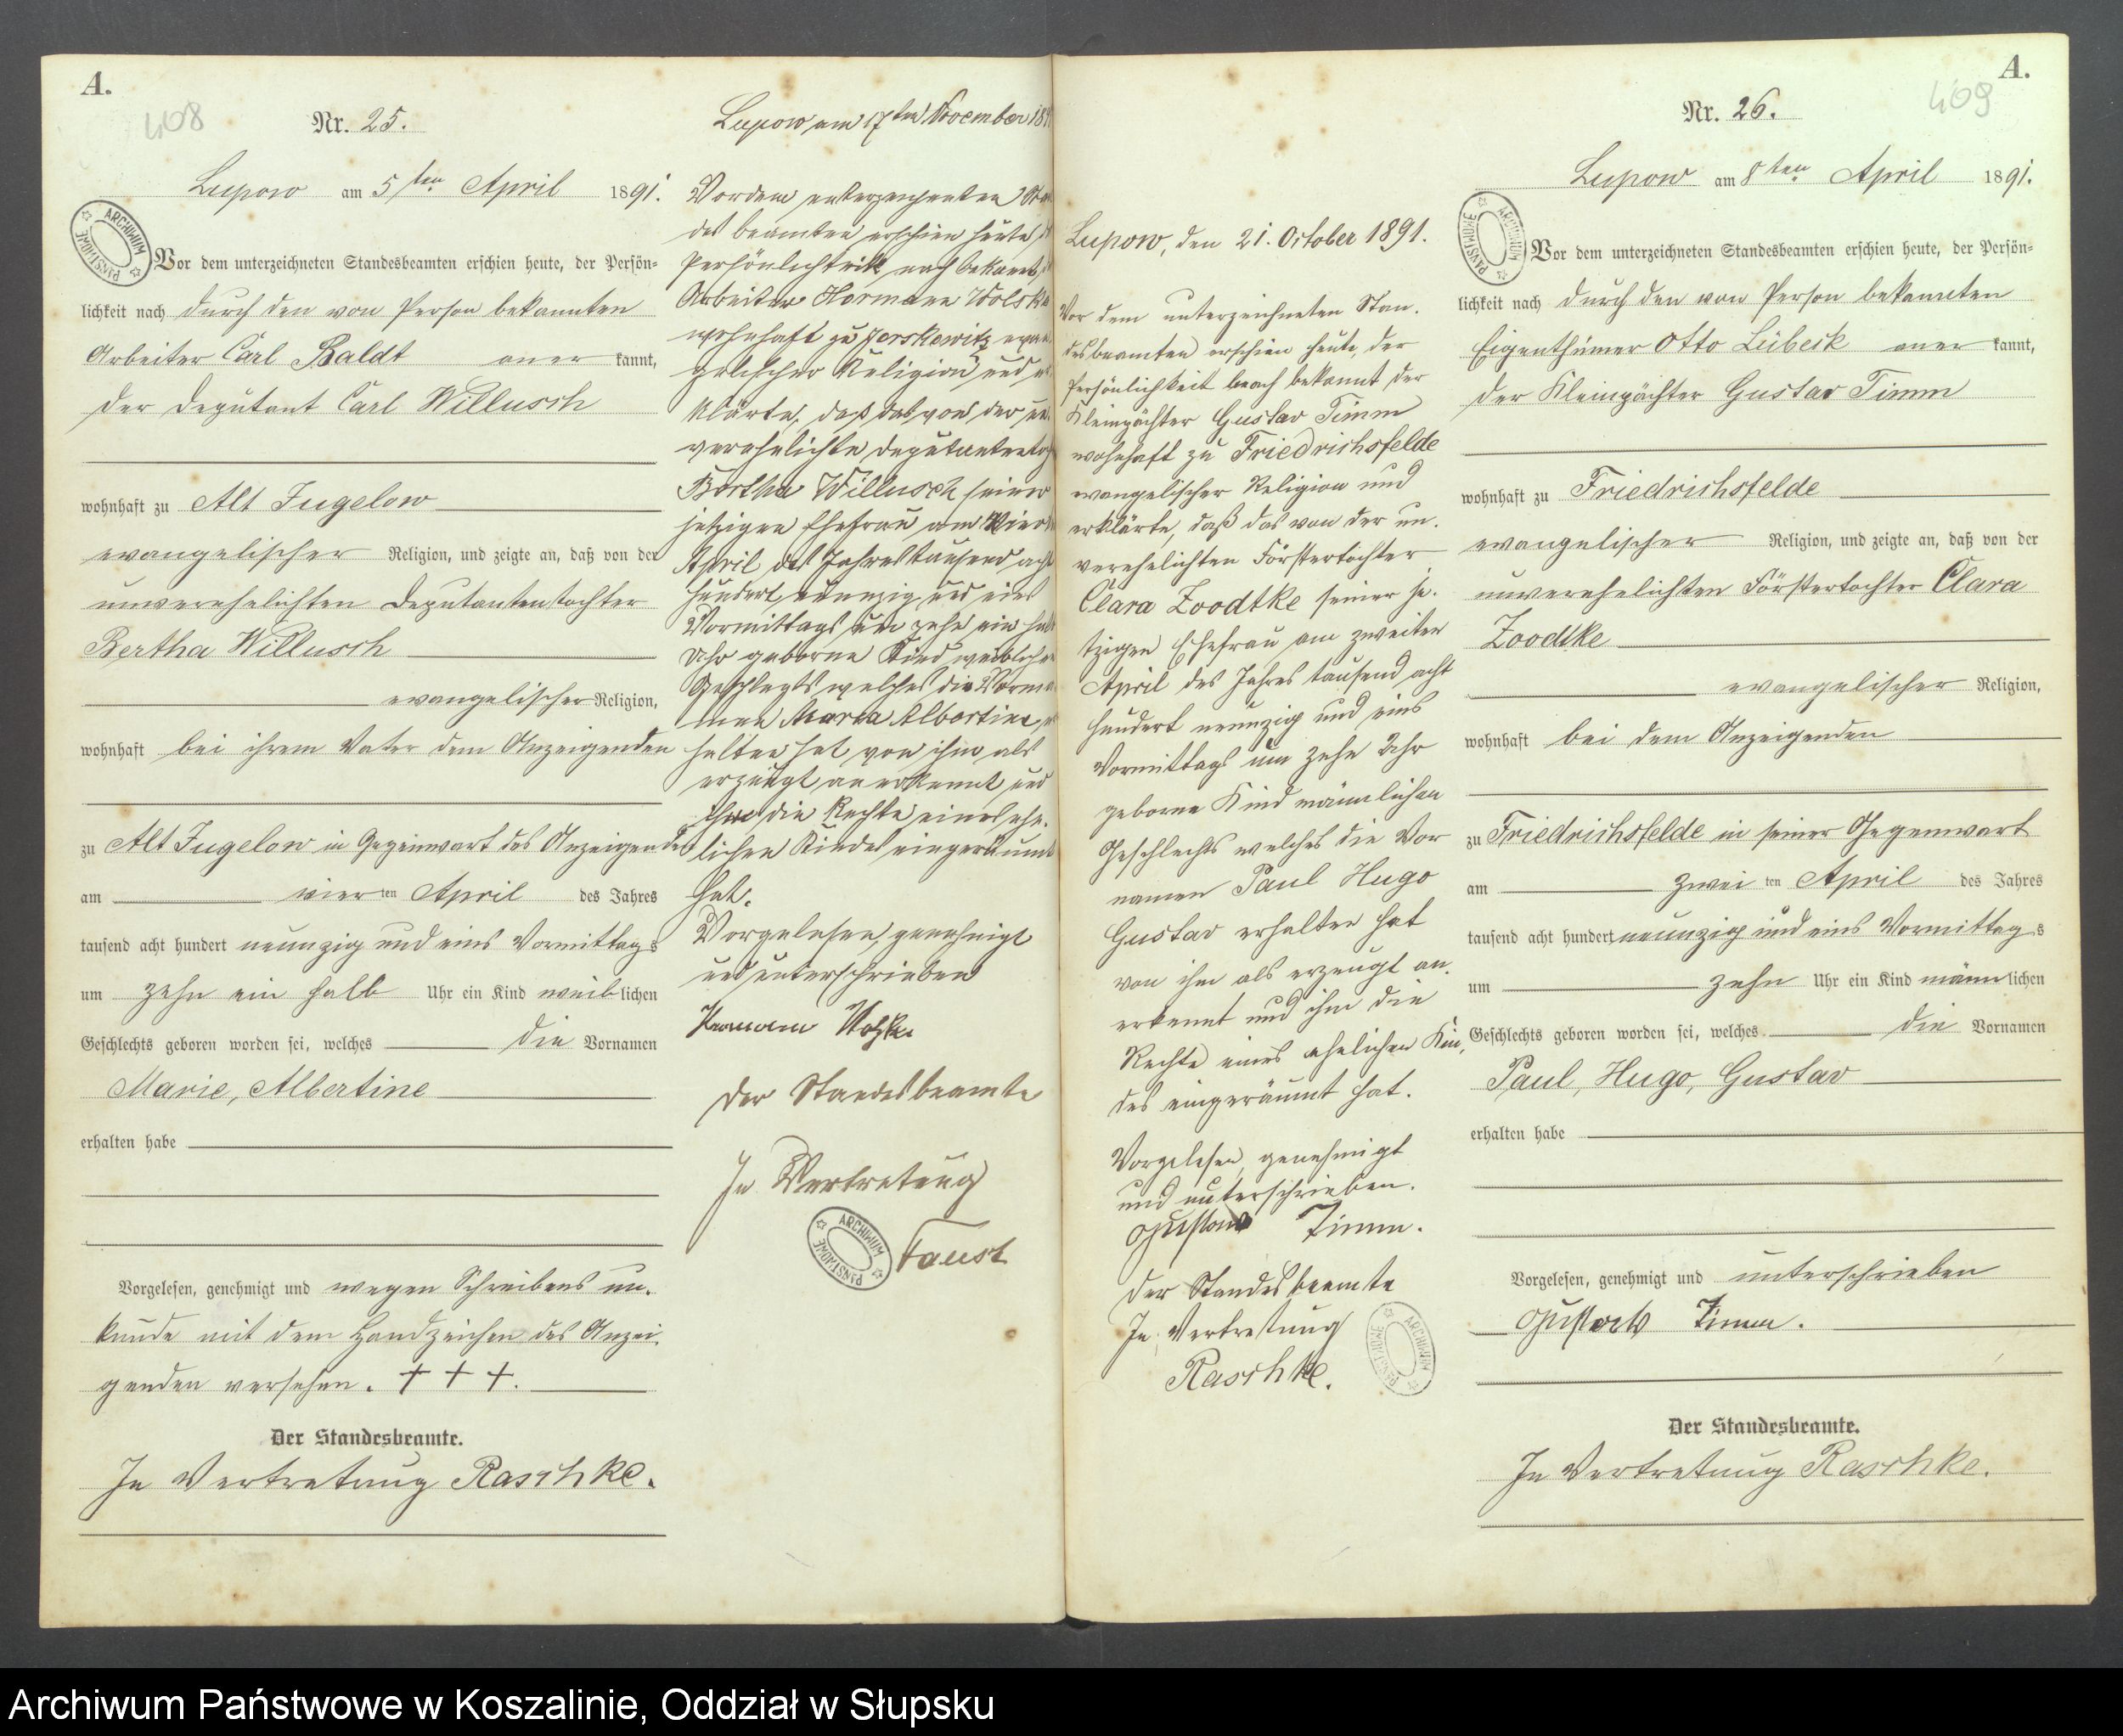 A.
408
Nr. 25.
Lupow am 5ten April 1891.
Vor dem unterzeichneten Standesbeamten erschien heute, der Persön=
lichkeit nach durch den von Person bekannten
Arbeiter Carl Baldt aner kannt,
der Deputant Carl Willusch
wohnhaft zu Alt Jugelow
evangelischer Religion, und zeigte an, daß von der
unverehelichten Deputantentochter
Bertha Willusch
evangelischer Religion,
wohnhaft bei ihrem Vater dem Anzeigenden
zu Alt Jugelow in Gegenwart des Anzeigenden
am vier ten April des Jahres
tausend acht hundert neunzig und eins Vormittags
um zehn ein halb Uhr ein Kind weiblichen
Geschlechts geboren worden sei, welches die Vornamen
Marie, Albertine
erhalten habe
Vorgelesen, genehmigt und wegen Schreibens un-
kunde mit dem Handzeichen des Anzei-
genden versehen. + + +.
Der Standesbeamte.
In Vertretung Raschke.
Lupow am 17ten November 18
Vor dem unterzeichneten
des beamten erschien heute,
Persönlichkeit nach bekannt,
Arbeiter Hermann
wohnhaft zu Jerskewitz
gelischer Religion und
klärte, daß das von der un
verehelichte Deputantentoch
Bertha Willusch seiner
jetzigen Ehefrau am Vier
April des Jahres tausend acht
hundert neunzig und eins
Vormittags um zehn ein halb
Uhr geborne Kind weiblichen
Geschlechts welches die Vorna
men Maria Albertine, er
halten hat von ihm als
erzeugt anerkannt und
ihm die Rechte eines ehe-
lichen Kindes eingeräumt
hat.
Vorgelesen, genehmigt
und unterschrieben
Hermann
Der Standesbeamte
In Vertretung
Faust
Lupow, den 21. October 1891.
Vor dem unterzeichneten Stan-
desbeamten erschien heute, der
Persönlichkeit nach bekannt der
Kleinpächter Gustav Timm
wohnhaft zu Friedrichsfelde
evangelischer Religion und
erklärte, daß das von der un-
verehelichten Förstertochter
Clara Zoodtke seiner je-
tzigen Ehefrau am zweiten
April des Jahres tausend acht
hundert neunzig und eins
Vormittags um zehn Uhr
geborne Kind männlichen
Geschlechts welches die Vor
namen Paul Hugo
Gustav erhalten hat
von ihm als erzeugt an-
erkannt und ihm die
Rechte eines ehelichen Kin-
des eingeräumt hat.
Vorgelesen, genehmigt
und unterschrieben.
Gustav Timm.
Der Standesbeamte
In Vertretung
Raschke.
A.
409
Nr. 26.
Lupow am 8ten April 1891.
Vor dem unterzeichneten Standesbeamten erschien heute, der Persön=
lichkeit nach durch den von Person bekannten
Eigenthümer Otto Lübeck aner kannt,
der Kleinpächter Gustav Timm
wohnhaft zu Friedrichsfelde
evangelischer Religion, und zeigte an, daß von der
unverehelichten Förstertochter Clara
Zoodtke
evangelischer Religion,
wohnhaft bei dem Anzeigenden
zu Friedrichsfelde in seiner Gegenwart
am zwei ten April des Jahres
tausend acht hundert neunzig und eins Vormittags
um zehn Uhr ein Kind männlichen
Geschlechts geboren worden sei, welches die Vornamen
Paul, Hugo, Gustav
erhalten habe
Vorgelesen, genehmigt und unterschrieben
Gustav Timm.
Der Standesbeamte.
In Vertretung Raschke.
ARCHIWUM PAŃSTWOWE
ARCHIWUM PAŃSTWOWE
ARCHIWUM PAŃSTWOWE
ARCHIWUM PAŃSTWOWE
Archiwum Państwowe w Koszalinie, Oddział w Słupsku